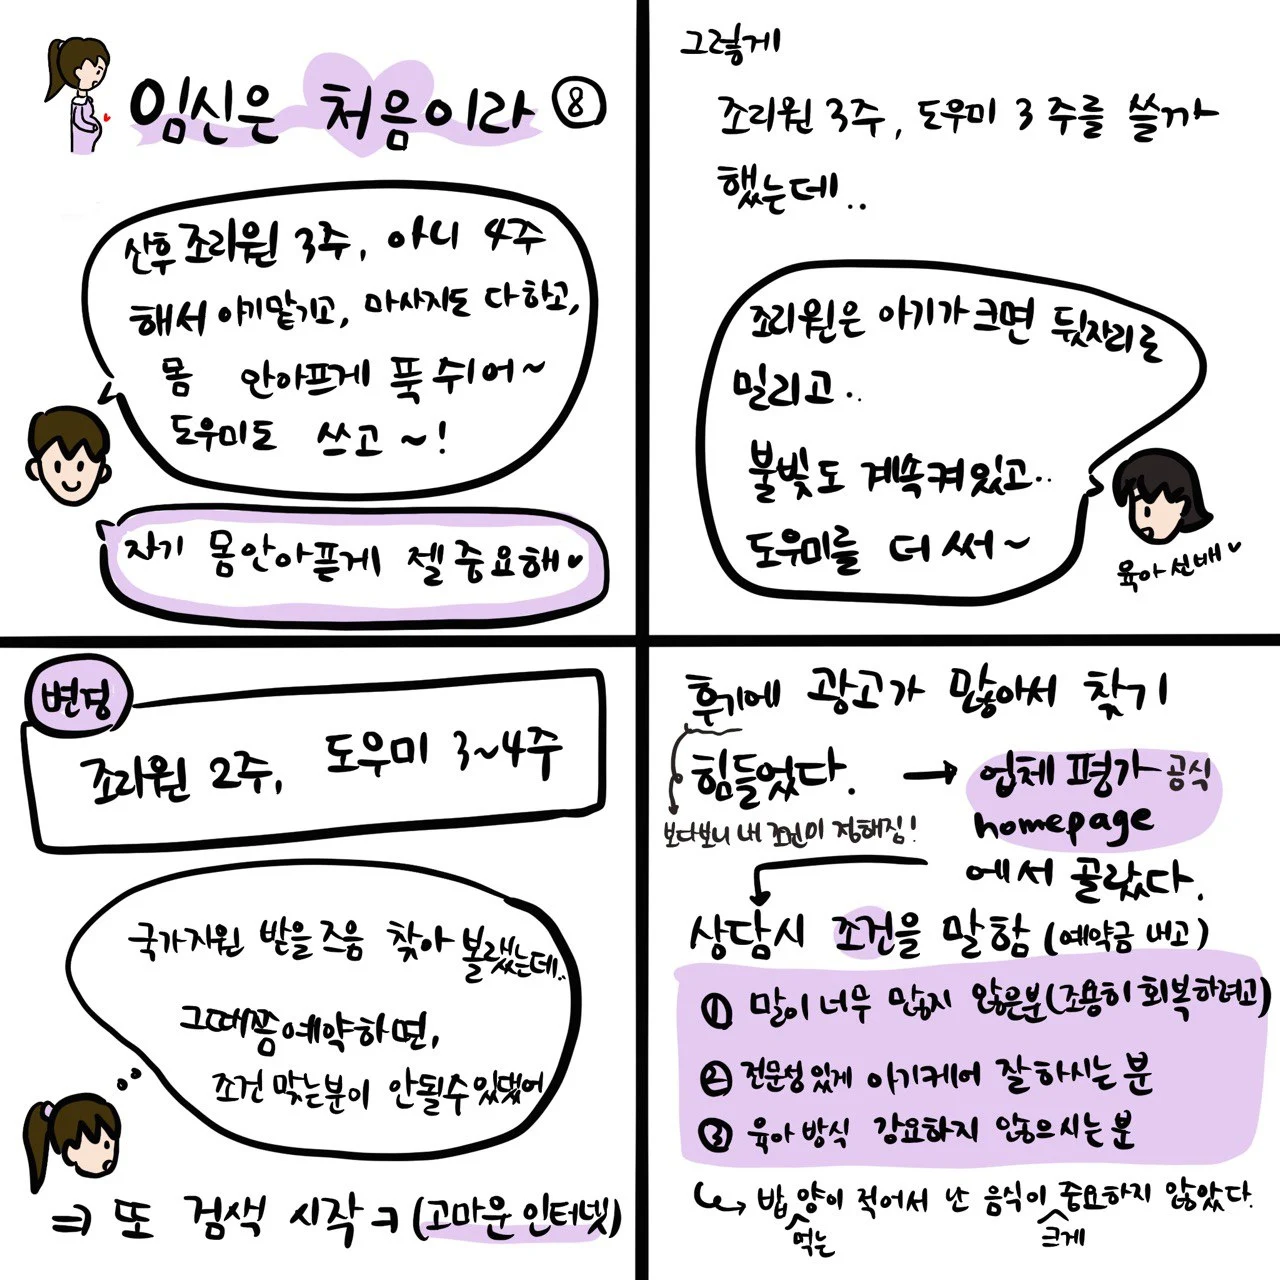 임신은 처음이라 ⑧
산후조리원 3주, 아니 4주
해서 아기맡기고, 마사지도 다 하고,
몸 안아프게 푹 쉬어~
도우미도 쓰고~!
자기 몸안아픈게 젤 중요해♥
그렇게
조리원 3주, 도우미 3주를 쓸까
했는데..
조리원은 아기가 크면 뒷자리로
밀리고..
불빛도 계속켜있고..
도우미를 더 써~
육아 선배♥
변경
조리원 2주, 도우미 3~4주
국가지원 받을즈음 찾아 볼랬는데..
그때쯤예약하면,
조건 맞는분이 안될수 있댔어
⇒ 또 검색 시작 ㅋ (고마운 인터넷)
후기에 광고가 많아서 찾기
힘들었다. → 업체 평가 공식
보다보니 내 조건이 정해짐!
homepage
에서 골랐다.
상담시 조건을 말함 (예약금 내고)
① 말이 너무 많지 않은분(조용히 회복하려고)
② 전문성 있게 아기케어 잘 하시는 분
③ 육아 방식 강요하지 않으시는 분
↪ 밥 양이 적어서 난 음식이 중요하지 않았다.
먹는 크게